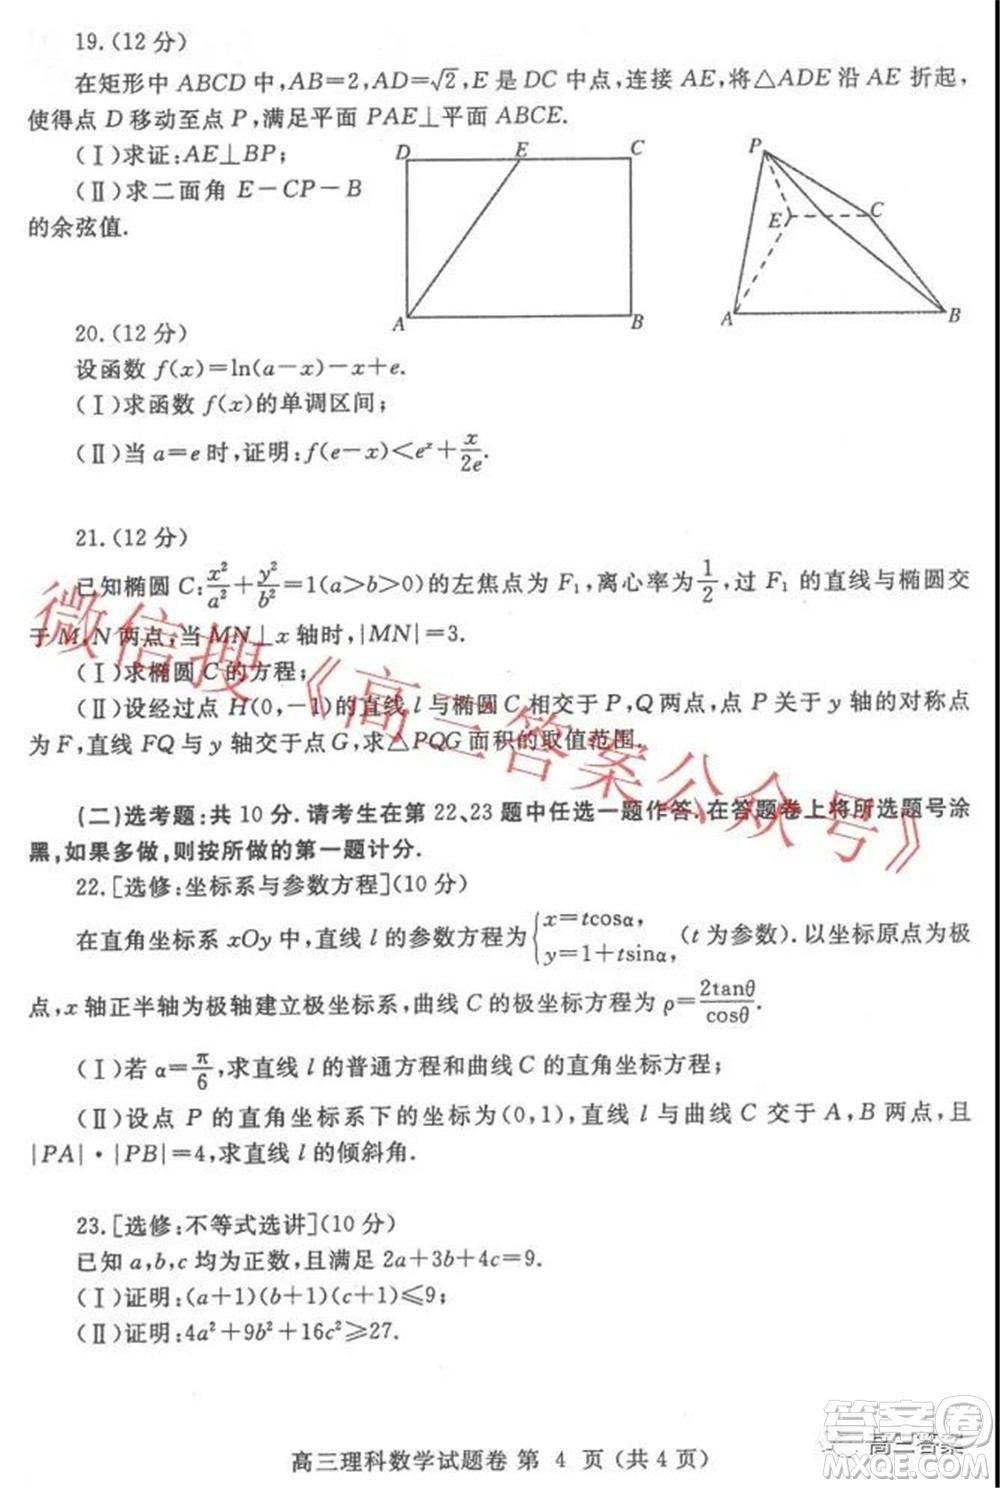 19.(12分)
在矩形中ABCD中,AB=2,AD=√2,E是DC中点,连接AE,将△ADE沿AE折起,
使得点D移动至点P,满足平面PAE⊥平面ABCE.
(Ⅰ)求证:AE⊥BP;
(Ⅱ)求二面角E-CP-B
的余弦值.
D E C
A B
P
E C
A B
20.(12分)
设函数f(x)=ln(a-x)-x+e.
(Ⅰ)求函数f(x)的单调区间;
(Ⅱ)当a=e时,证明:f(e-x)<e^x+x/2e.
21.(12分)
已知椭圆C:x²/a²+y²/b²=1(a>b>0)的左焦点为F₁,离心率为1/2,过F₁的直线与椭圆交
于M,N两点,当MN⊥x轴时,|MN|=3.
(Ⅰ)求椭圆C的方程;
(Ⅱ)设经过点H(0,-1)的直线l与椭圆C相交于P,Q两点,点P关于y轴的对称点
为F,直线FQ与y轴交于点G,求△PQG面积的取值范围.
微信搜《高三答案公众号》
(二)选考题:共10分.请考生在第22、23题中任选一题作答.在答题卷上将所选题号涂
黑,如果多做,则按所做的第一题计分.
22.[选修:坐标系与参数方程](10分)
在直角坐标系xOy中,直线l的参数方程为{x=tcosα, y=1+tsinα,(t为参数).以坐标原点为极
点,x轴正半轴为极轴建立极坐标系,曲线C的极坐标方程为ρ=2tanθ/cosθ.
(Ⅰ)若α=π/6,求直线l的普通方程和曲线C的直角坐标方程;
(Ⅱ)设点P的直角坐标系下的坐标为(0,1),直线l与曲线C交于A,B两点,且
|PA|·|PB|=4,求直线l的倾斜角.
23.[选修:不等式选讲](10分)
已知a,b,c均为正数,且满足2a+3b+4c=9.
(Ⅰ)证明:(a+1)(b+1)(c+1)≤9;
(Ⅱ)证明:4a²+9b²+16c²≥27.
答案圈
高三答案
MXQE.COM
高三理科数学试题卷 第 4 页(共4页)